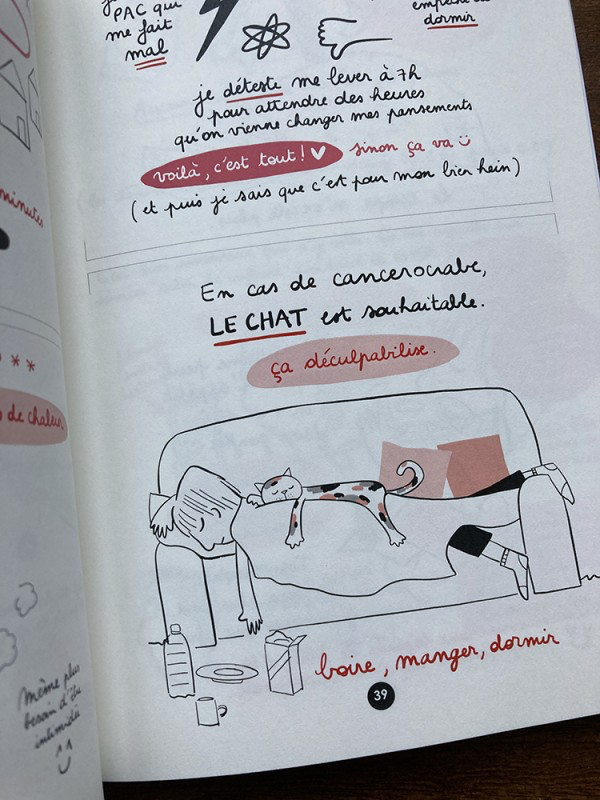 PAC qui
me fait
mal
dormir
je déteste me lever à 7h
pour attendre des heures
qu'on vienne changer mes pansements
voilà, c'est tout ! sinon ça va
(et puis je sais que c'est pour mon bien hein)
En cas de cancerocrabe,
LE CHAT est souhaitable.
ça déculpabilise.
boire, manger, dormir
39
minutes
de chaleur.
même plus
besoin d'être
intimidée